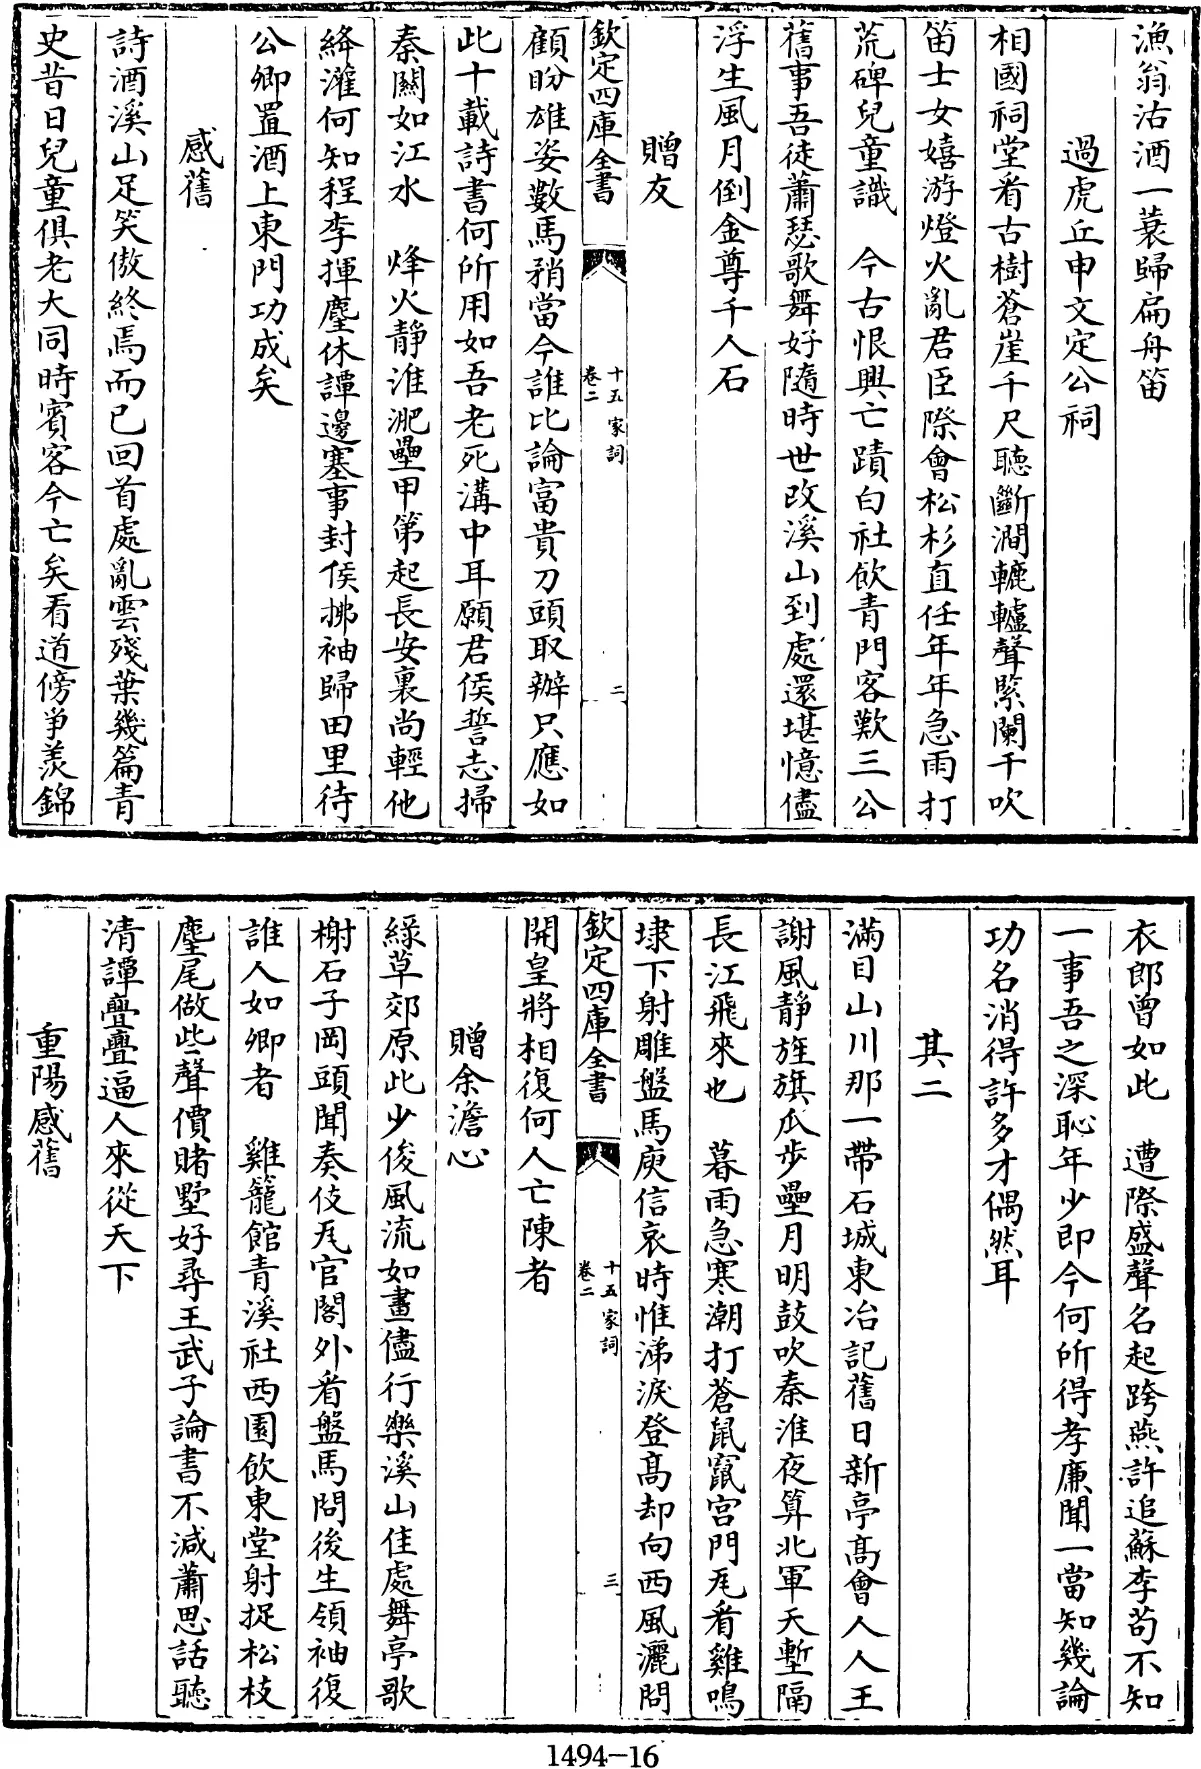 漁翁沽酒一蓑歸扁舟笛
過虎丘申文定公祠
相國祠堂看古樹蒼崖千尺聽斷澗轆轤聲緊闌干吹
笛士女嬉游燈火亂君臣際會松杉直任年年急雨打
荒碑兒童識　今古恨興亡蹟白社飲青門客歎三公
舊事吾徒蕭瑟歌舞好隨時世改溪山到處還堪憶儘
浮生風月倒金尊千人石
贈友
欽定四庫全書
十五家詞
卷二
二
顧盼雄姿數馬矟當今誰比論富貴刀頭取辦只應如
此十載詩書何所用如吾老死溝中耳願君侯誓志掃
秦關如江水　烽火靜淮淝壘甲第起長安裏尚輕他
絳灌何知程李揮麈休譚邊塞事封侯拂袖歸田里待
公卿置酒上東門功成矣
感舊
詩酒溪山足笑傲終焉而已回首處亂雲殘葉幾篇青
史昔日兒童俱老大同時賓客今亡矣看道傍爭羨錦
衣郎曾如此　遭際盛聲名起跨燕許追蘇李苟不知
一事吾之深恥年少即今何所得孝廉聞一當知幾論
功名消得許多才偶然耳
其二
滿目山川那一帶石城東冶記舊日新亭高會人人王
謝風靜旌旗瓜步壘月明鼓吹秦淮夜算北軍天塹隔
長江飛來也　暮雨急寒潮打蒼鼠竄宮門瓦看雞鳴
埭下射雕盤馬庾信哀時惟涕淚登高却向西風灑問
欽定四庫全書
十五家詞
卷二
三
開皇將相復何人亡陳者
贈余澹心
綠草郊原此少俊風流如畫儘行樂溪山佳處舞亭歌
榭石子岡頭聞奏伎瓦官閣外看盤馬問後生領袖復
誰人如卿者　雞籠館青溪社西園飲東堂射捉松枝
麈尾做些聲價賭墅好尋王武子論書不減蕭思話聽
清譚亹亹逼人來從天下
重陽感舊
1494-16